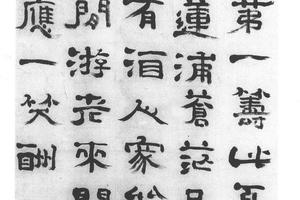 第一籌此
蓮浦蒼茫
有酒人家
閒游老來
應一笑酬